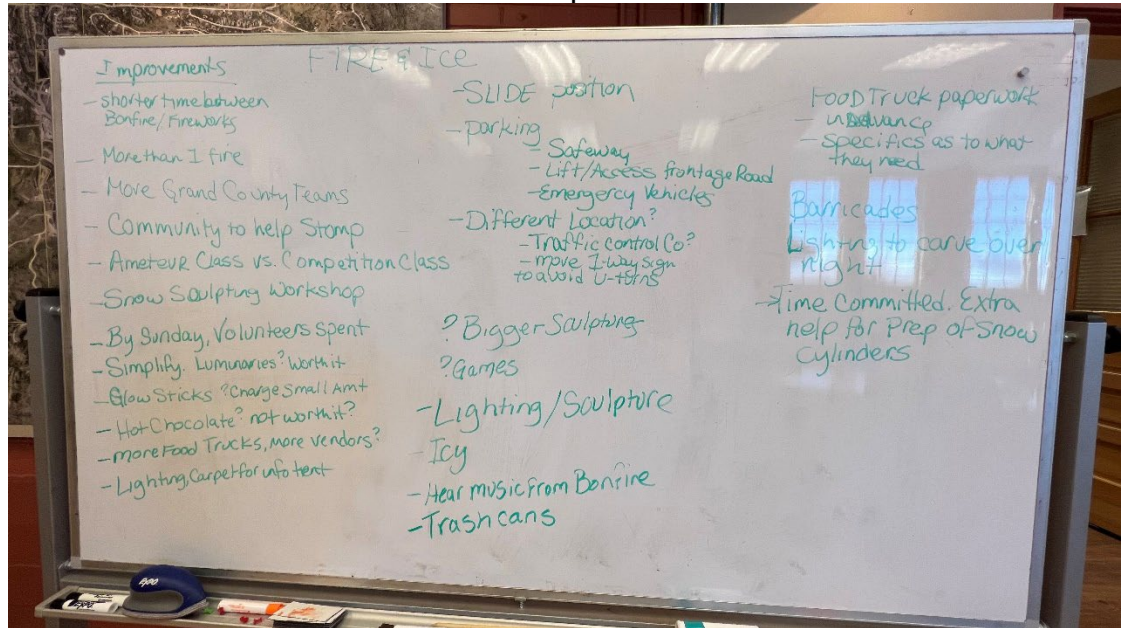 FIRE & ICE
Improvements
- shorter time between
Bonfire/Fireworks
- More than 1 fire
- More Grand County Teams
- Community to help Stomp
- Ameteur Class vs. Competition Class
- Snow Sculpting Workshop
- By Sunday, Volunteers spent
- Simplify. Luminaries? Worth it
- Glow Sticks? Charge Small Amt
- Hot Chocolate? not worth it?
- more Food Trucks, More vendors?
- Lighting, Carpet for info tent
- SLIDE position
- parking
- Safeway
- Lift/Access frontage Road
- Emergency Vehicles
- Different Location?
- Traffic control Co?
- move 1-way sign
to avoid U-turns
? Bigger Sculptures
? Games
- Lighting/Sculpture
- Icy
- Hear music from Bonfire
- Trash cans
FOOD Truck paperwork
- in advance
- Specifics as to what
they need
Barricades
Lighting to carve over
night
- Time Committed. Extra
help for Prep of Snow
Cylinders
Expo